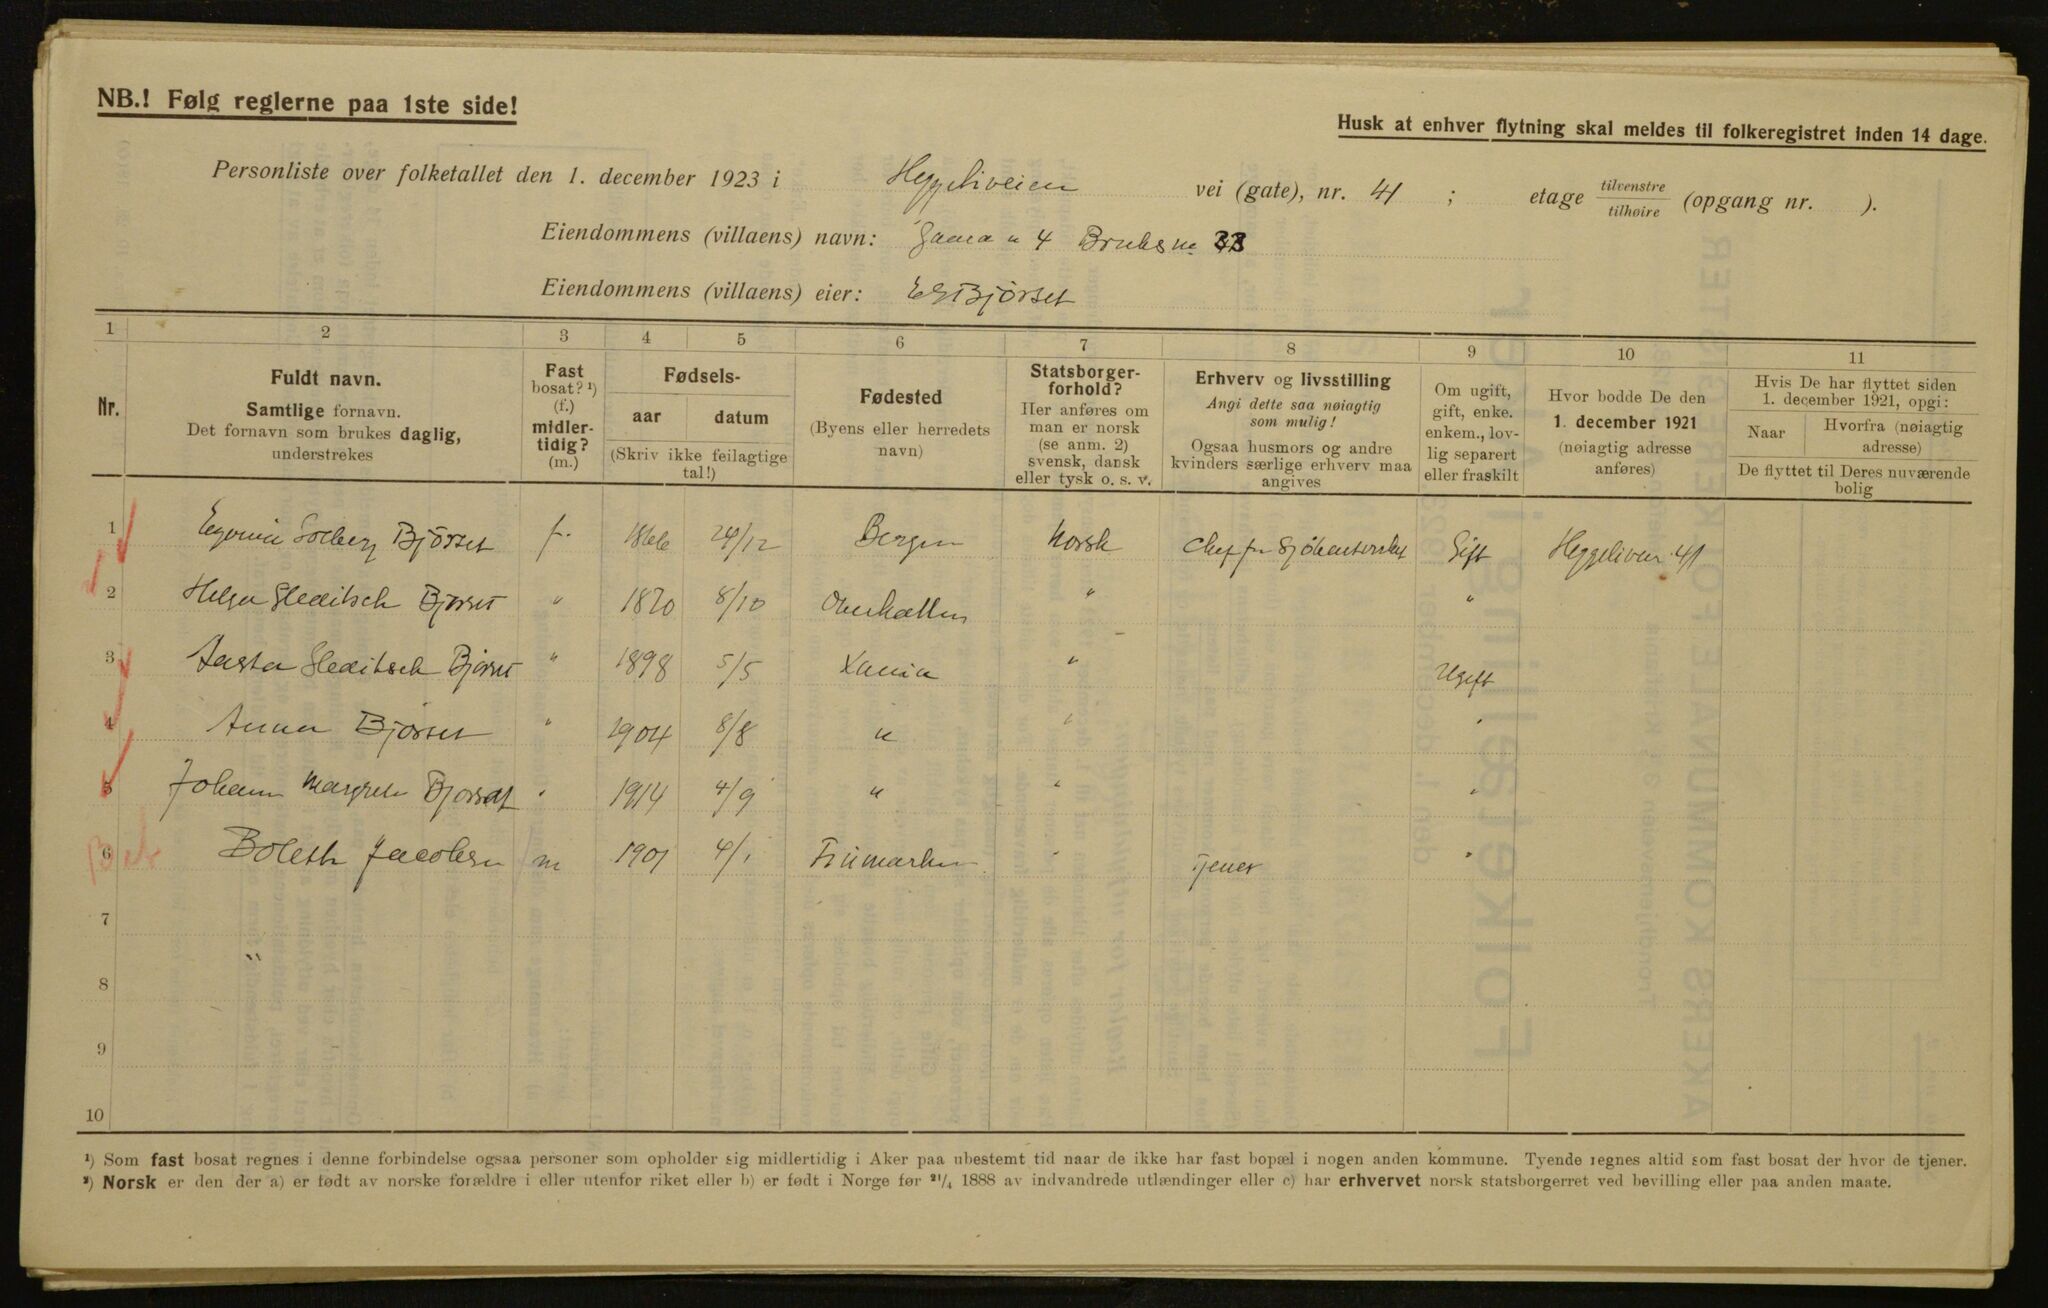 NB.! Følg reglerne paa 1ste side!
Husk at enhver flytning skal meldes til folkeregistret inden 14 dage.
Personliste over folketallet den 1. december 1923 i Heggeliveien vei (gate), nr. 41 ; etage tilvenstre tilhøire (opgang nr. ).
Eiendommens (villaens) navn: 4 Bruksnr
Eiendommens (villaens) eier: E Bjørset
1 2 3 4 5 6 7 8 9 10 11
Nr.
Fuldt navn.
Samtlige fornavn.
Det fornavn som brukes daglig,
understrekes
Fast
bosat? ¹)
(f.)
midler-
tidig?
(m.)
Fødsels-
aar datum
(Skriv ikke feilagtige
tal!)
Fødested
(Byens eller herredets
navn)
Statsborger-
forhold?
Her anføres om
man er norsk
(se anm. 2)
svensk, dansk
eller tysk o. s. v.
Erhverv og livsstilling
Angi dette saa nøiagtig
som mulig!
Ogsaa husmors og andre
kvinders særlige erhverv maa
angives
Om ugift,
gift, enke.
enkem., lov-
lig separert
eller fraskilt
Hvor bodde De den
1. december 1921
(nøiagtig adresse
anføres)
Hvis De har flyttet siden
1. december 1921, opgi:
Naar
Hvorfra (nøiagtig
adresse)
De flyttet til Deres nuværende
bolig
1 Solberg Bjørset f. 1866 24/12 Bergen Norsk Chef for Gift Heggelivei 41
2 Helga Gleditsch Bjørset " 1870 8/10 " "
3 Aasta Gleditsch Bjørset " 1898 5/5 Kania " Ugift
4 Anna Bjørset " 1904 8/8 " " "
5 Johanne Margrete Bjørset " 1914 4/9 " " "
6 Boleth Jacobsen m 1901 4/1 Finmarken " Tjener "
7
8
9
10
¹) Som fast bosat regnes i denne forbindelse ogsaa personer som opholder sig midlertidig i Aker paa ubestemt tid naar de ikke har fast bopæl i nogen anden kommune. Tyende regnes altid som fast bosat der hvor de tjener.
²) Norsk er den der a) er født av norske forældre i eller utenfor riket eller b) er født i Norge før 21/4 1888 av indvandrede utlændinger eller c) har erhvervet norsk statsborgerret ved bevilling eller paa anden maate.